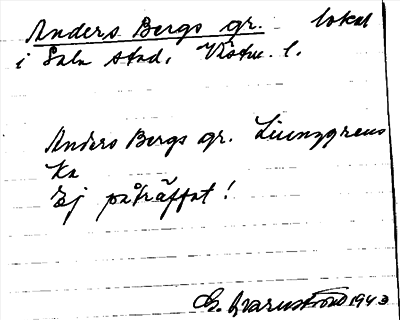 Anders Bergs gr. lokal
i Sala stad. Västm. l.
Anders Bergs gr. Ljunggrens
Ka
Ej påträffat!
1943